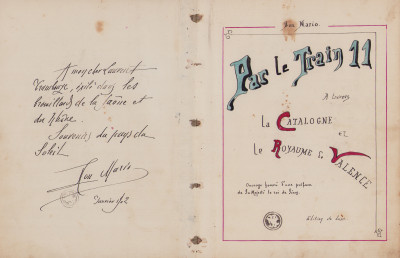 A mon cher Laurent
exilé dans les
brouillards de la Saône et
du Rhône.
Souvenirs du pays du
Soleil
Don Mario
Janvier 1902
Don Mario.
Par le Train 11
A travers
La Catalogne
et
Le Royaume de Valence
Ouvrage honoré d'une préface
de Sa Majesté le roi de